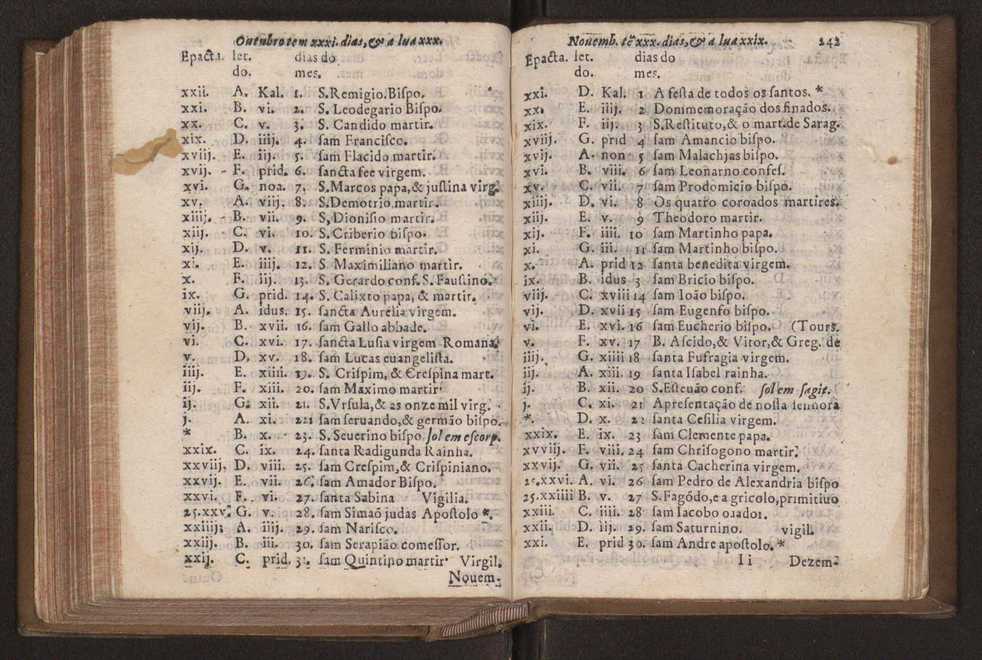 Outubro tem xxxi. dias, & a lua xxx.
Epacta. let. dias do
do. mes.
xxii. A. Kal. 1. S. Remigio. Bispo.
xxi. B. vi. 2. S. Leodegario Bispo.
xx. C. v. 3. S. Candido martir.
xix. D. iiij. 4. sam Francisco.
xviij. E. iij. 5. sam Flacido martir.
xvij. F. prid. 6. sancta fee virgem.
xvi. G. noa. 7. S. Marcos papa, & justina virg.
xv. A. viij. 8. S. Demotrio martir.
xiiij. B. vii. 9. S, Dionisio martir.
xiij. C. vi. 10. S. Criberio bispo.
xij. D. v. 11. S. Ferminio martir.
xi. E. iiij. 12. S. Maximiliano martir.
x. F. iij. 13. S. Gerardo conf. S. Faustino.
ix. G. prid. 14. S. Calixto papa, & martir.
viij. A. idus. 15. sancta Aurelia virgem.
vij. B. xvii. 16. sam Gallo abbade.
vi. C. xvi. 17. sancta Lusia virgem Romana.
v. D. xv. 18. sam Lucas euangelista.
iiij. E. xiiii. 19. S. Crispim, & Crespina mart.
iij. F. xiii. 20. sam Maximo martir
ij. G. xii. 21. S. Vrsula, & as onze mil virg.
j. A. xi. 22. sam seruando, & germão bispo.
* B. x. 23. S. Seuerino bispo. sol em escorp.
xxix. C. ix. 24. santa Radigunda Rainha.
xxviij. D. viii. 25. sam Crespim, & Crispiniano.
xxvij. E. vii. 26. sam Amador Bispo.
xxvi. F. vi. 27. santa Sabina Vigilia.
25.xxv. G. v. 28. sam Simaõ judas Apostolo *.
xxiiij. A. iiij. 29. sam Narisco.
xxiij. B. iii. 30. sam Serapião comessor.
xxij. C. prid. 31. sam Quintino martir Virgil.
Nouem-
Nouemb. tẽ xxx. dias, & a lua xxix. 242
Epacta. let. dias do
do. mes.
xxi. D. Kal. 1 A festa de todos os santos. *
xx. E. iiij. 2 Donimemoração dos finados.
xix. F. iij. 3 S. Restituto, & o mart. de Sarag.
xviij. G. prid 4 sam Amancio bispo.
xvij. A. non 5 sam Malachjas bispo.
xvi. B. viii. 6 sam Leonarno confes.
xv. C. vii. 7 sam Prodomicio bispo.
xiiij. D. vi. 8 Os quatro coroados martires.
xiij. E. v. 9 Theodoro martir.
xij. F. iiii. 10 sam Martinho papa.
xi. G. iii. 11 sam Martinho bispo.
x. A. prid 12 santa benedita virgem.
ix. B. idus 3 sam Bricio bispo.
viij. C. xviii 14 sam Ioão bispo.
vij. D. xvii 15 sam Eugenfo bispo.
vi. E. xvi. 16 sam Eucherio bispo. (Tours.
v. F. xv. 17 B. Ascido, & Vitor, & Greg. de
iiij. G. xiiii 18 santa Fufragia virgem.
iij. A. xiii. 19 santa Isabel rainha.
ij. B. xii. 20 S. Esteuão conf. sol em sagit.
j. C. xi. 21 Apresentação de nossa sennora
*. D. x. 22 santa Cesilia virgem.
xxix. E. ix. 23 sam Clemente papa.
xxviij. F. viii. 24 sam Chrisogono martir.
xxvij. G. vii. 25 santa Cacherina virgem.
xxvi. A. vi. 26 sam Pedro de Alexandria bispo
25.xxiiii B. v. 27 S. Fagódo, e a gricolo, primitiuo
xxiii. C. iiii. 28 sam Iacobo
xxii. D. iij. 29. sam Saturnino. vigil.
xxi. E. prid 30. sam Andre apostolo. *
Ii Dezem-